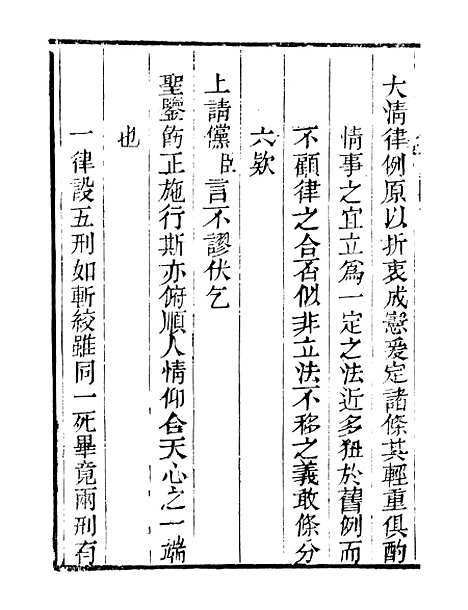 大清律例原以折衷成憲爰定諸條其輕重俱酌
情事之宜立爲一定之法近多狃於舊例而
不顧律之合否似非立法不移之義敢條分
六欵
上請儻臣言不謬伏乞
聖鑒飭正施行斯亦俯順人情仰合天心之一端
也
一律設五刑如斬絞雖同一死畢竟兩刑有